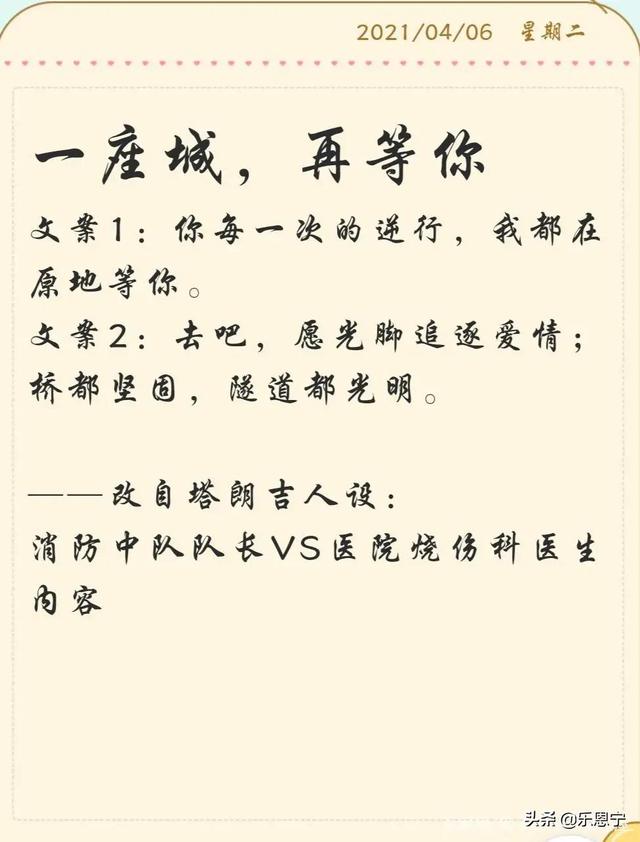 2021/04/06 星期二
一座城，再等你
文案1：你每一次的逆行，我都在
原地等你。
文案2：去吧，愿光脚追逐爱情；
桥都坚固，隧道都光明。
——改自塔朗吉人设：
消防中队队长VS医院烧伤科医生
内容
头条 @乐恩宁